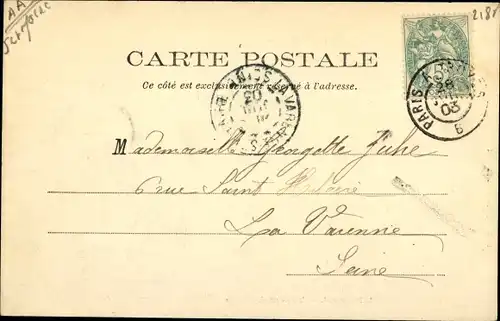 2181
CARTE POSTALE
Ce côté est exclusivement réservé à l'adresse.
PARIS
03
Mademoiselle Georgette Juhe
6 rue Saint Hilaire
La Varenne
Seine